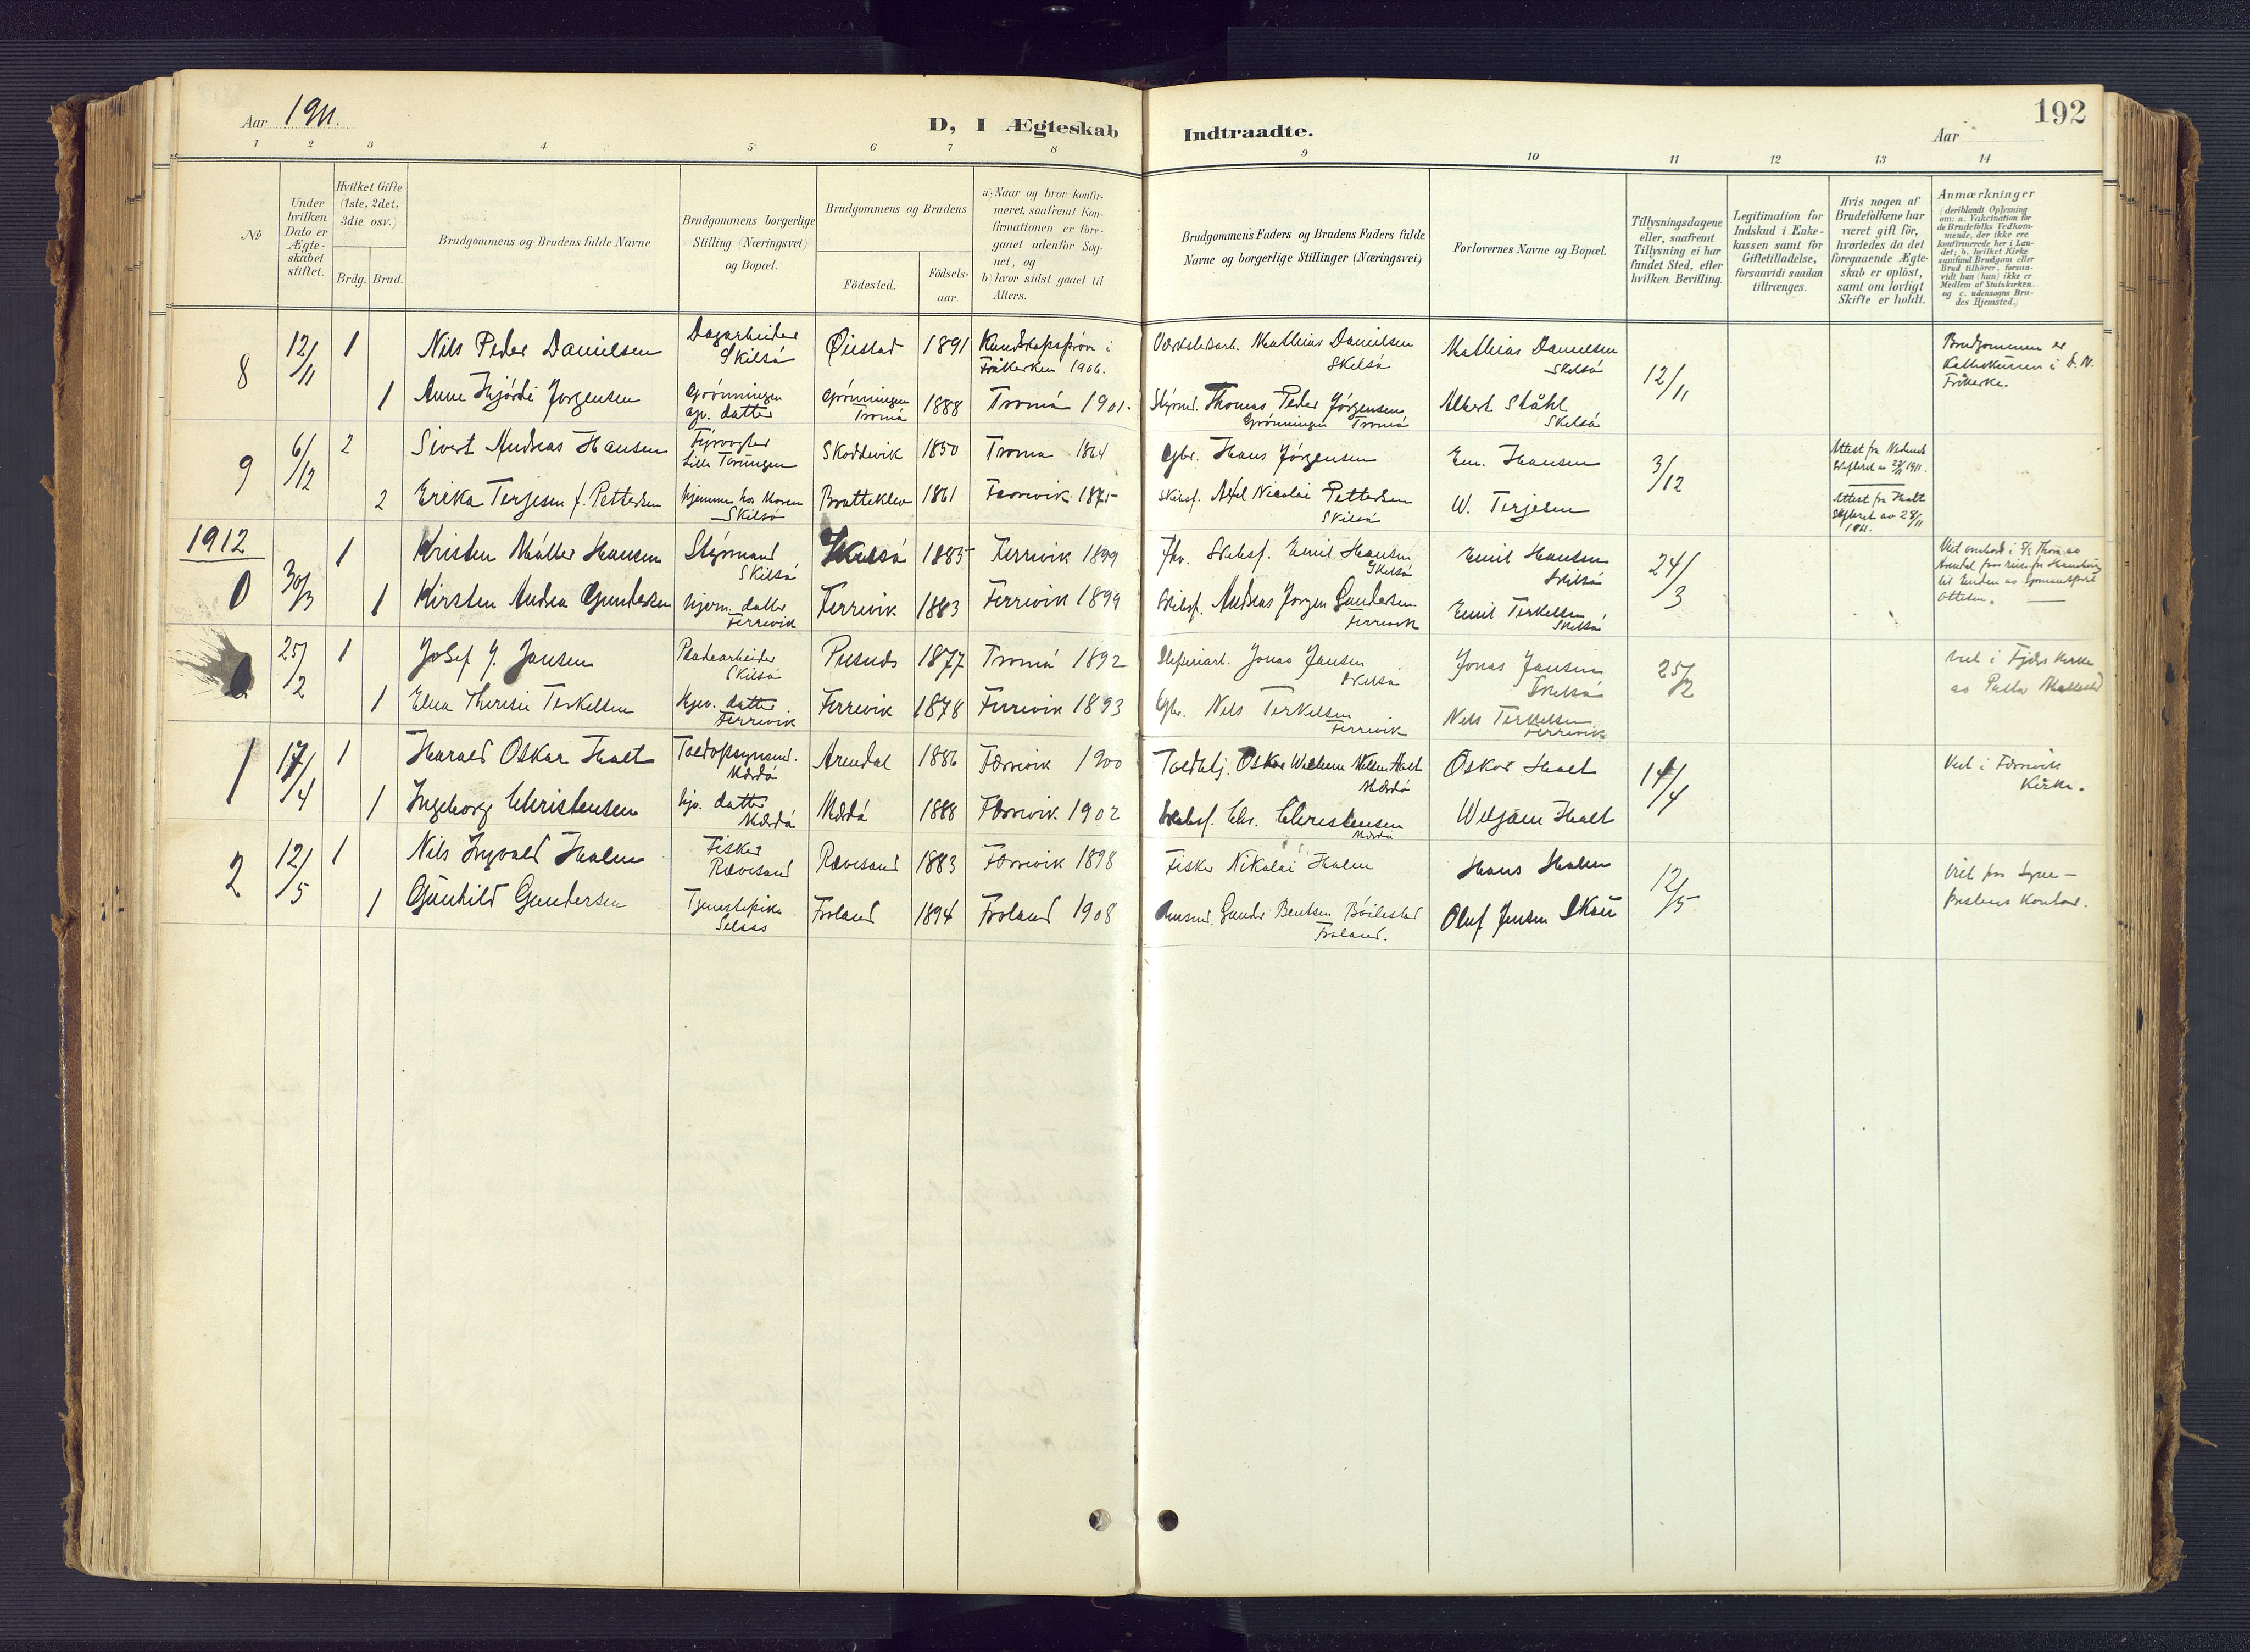 Aar 1911.
D, I Ægteskab Indtraadte.
Aar
192
1 2 3 4 5 6 7 8 9 10 11 12 13 14
No
Under hvilken Dato er Ægte-skabet stiftet.
Hvilket Gifte (1ste, 2det, 3die osv.)
Brdg. Brud.
Brudgommens og Brudens fulde Navne
Brudgommens borgerlige Stilling (Næringsvei) og Bopæl.
Brudgommens og Brudens
Födested.
Födsels-aar.
a) Naar og hvor konfir-meret, saafremt Kon-firmationen er fore-gaaet udenfor Sog-net, og
b) hvor sidst gaaet til Alters.
Brudgommens Faders og Brudens Faders fulde Navne og borgerlige Stillinger (Næringsvei)
Forlovernes Navne og Bopæl.
Tillysningsdagene eller, saafremt Tillysning ei har fundet Sted, efter hvilken Bevilling.
Legitimation for Indskud i Enke-kassen samt for Giftetilladelse, forsaavidt saadan tiltrænges.
Hvis nogen af Brudefolkene har været gift för, hvorledes da det foregaaende Ægte-skab er oplöst, samt om lovligt Skifte er holdt.
Anmærkninger (deriblandt Oplysning om: a. Vakcination for de Brudefolks Vedkom-mende, der ikke ere konfirmerede her i Lan-det; b. hvilket Kirke-samfund Brudgom eller Brud tilhörer, forsaa-vidt han (hun) ikke er Medlem af Statskirken. og c. udensogns Bru-des Hjemsted.)
8 12/11 1 Nils Peder Danielsen Dagarbeider Skilsö Øiestad 1891 Kundskapsprøve i Frikirken 1906. Værkstedsarb. Mathias Danielsen Skilsö Mathias Danielsen Skilsö 12/11 Brudgommen er i d. N. Frikirke.
1 Anne Jørgensen Grönningen gjv. datter Grönningen Tromö 1888 Tromö 1901. Styrmd. Thomas Peder Jörgensen Grönningen Tromö Albert Ståhl Skilsö
9 6/12 2 Sivert Andreas Hansen Fyrvogter Lille Torungen Skoddevik 1850 Tromö 1864 Gbr. Hans Jörgensen Em. Hansen 3/12 Attest fra Nedenes Skifteret av 22/11 1911.
2 Erika Terjesen f. Pettersen hjemme hos Moren Skilsö Bratteklev 1861 Færvik 1875 Skibsf. Axel Nicolai Pettersen Skilsö W. Terjesen Attest fra Holt Skifteret av 28/11 1911.
1912
0 30/3 1 Kristen Möller Hansen Styrmand Skilsö Skilsö 1885 Ferrevik 1899 Fhv. Skibsf. Emil Hansen Skilsö Emil Hansen Skilsö 24/3 Viet ombord i S/S Thomas Arendal paa reise fra Hamburg til Emden av Sjømandsprest Ottesen.
1 Kirsten Andrea Gundersen hjem. datter Ferrevik Ferrevik 1883 Ferrevik 1899 Skibsf. Andreas Jørgen Gundersen Ferrevik Emil Terkelsen Skilsö
25/2 1 Josef J. Jansen Pladearbeider Skilsö Pusnes 1877 Tromö 1892 Jonas Jansen Skilsö Jonas Jansen Skilsö 25/2 Viet i Fjære Kirke av Pastor
1 Elna Theresie Terkelsen hjev. datter Ferrevik Ferrevik 1878 Ferrevik 1893 Gbr. Nils Terkelsen Ferrevik Nils Terkelsen Ferrevik
1 17/4 1 Harald Oskar Holt Toldopsynsmd. Merdö Arendal 1886 Færvik 1900 Toldbtj. Oskar Wilhelm Holt Merdö Oskar Holt 14/4 Viet i Færvik Kirke.
1 Ingeborg Christensen hjv. datter Merdö Merdö 1888 Færvik 1902 Skibsf. Chr. Christensen Merdö Wiljam Holt
2 12/5 1 Nils Ingvald Holm Fisker Rævesand Rævesand 1883 Færvik 1898 Fisker Nikolai Holm Hans Holm 12/5 Viet paa Sogne-prestens Kontor.
1 Gunhild Gundersen Tjenestepike Selaas Froland 1894 Froland 1908 Gunder Bentsen Böilestad Froland. Oluf Jensen Skou